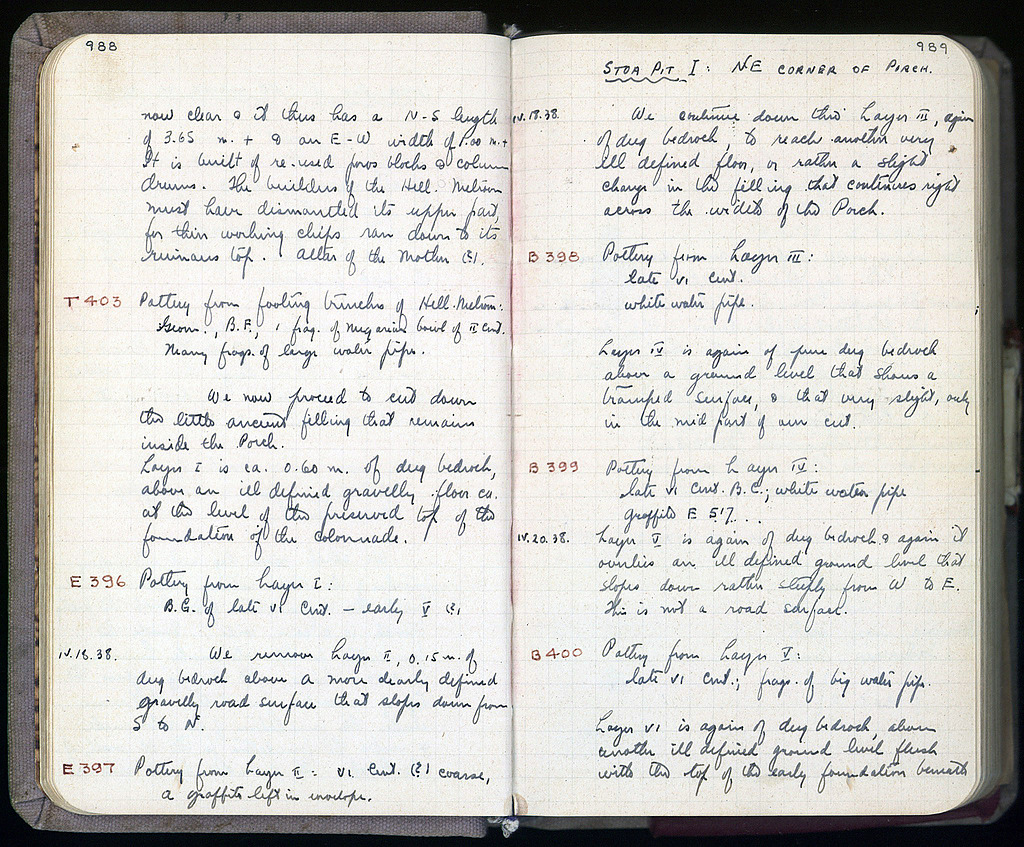 988
now clear & it thus has a N-S length
of 3.65 m. + & an E-W width of 1.00 m. +
It is built of re-used poros blocks & column
drums. The builders of the Hell. Metroon
must have dismantled its upper part,
for thin working chips ran down to its
ruinous top. Altar of the Mother (?).
T 403 Pottery from footing trenches of Hell. Metroon:
Geom., B.F., 1 frag. of Megarian bowl of II Cent.
Many frags. of large water pipe.
We now proceed to cut down
the little ancient filling that remains
inside the Porch.
Layer I is ca. 0.60 m. of dug bedrock,
above an ill defined gravelly floor ca.
at the level of the preserved top of the
foundation of the colonnade.
E 396 Pottery from Layer I:
B.G. of late VI Cent. – early V (?).
IV.18.38. We remove Layer II, 0.15 m. of
dug bedrock above a more clearly defined
gravelly road surface that slopes down from
S to N.
E 397 Pottery from Layer II: VI Cent. (?) coarse,
a graffito left in envelope.
989
STOA PIT I: NE CORNER OF PORCH.
IV.18.38. We continue down thro Layer III, again
of dug bedrock, to reach another very
ill defined floor, or rather a slight
change in the filling that continues right
across the width of the Porch.
B 398 Pottery from Layer III:
late VI Cent.
white water pipe.
Layer IV is again of pure dug bedrock
above a ground level that shows a
tramped surface, & that very slight, only
in the mid part of our cut.
B 399 Pottery from Layer IV:
late VI Cent. B.C.; white water pipe
graffito E 517...
IV.20.38. Layer V is again of dug bedrock & again it
overlies an ill defined ground level that
slopes down rather steeply from W to E.
This is not a road surface.
B 400 Pottery from Layer V:
late VI Cent.; frags. of big water pipe.
Layer VI is again of dug bedrock, above
another ill defined ground level flush
with the top of the early foundation beneath